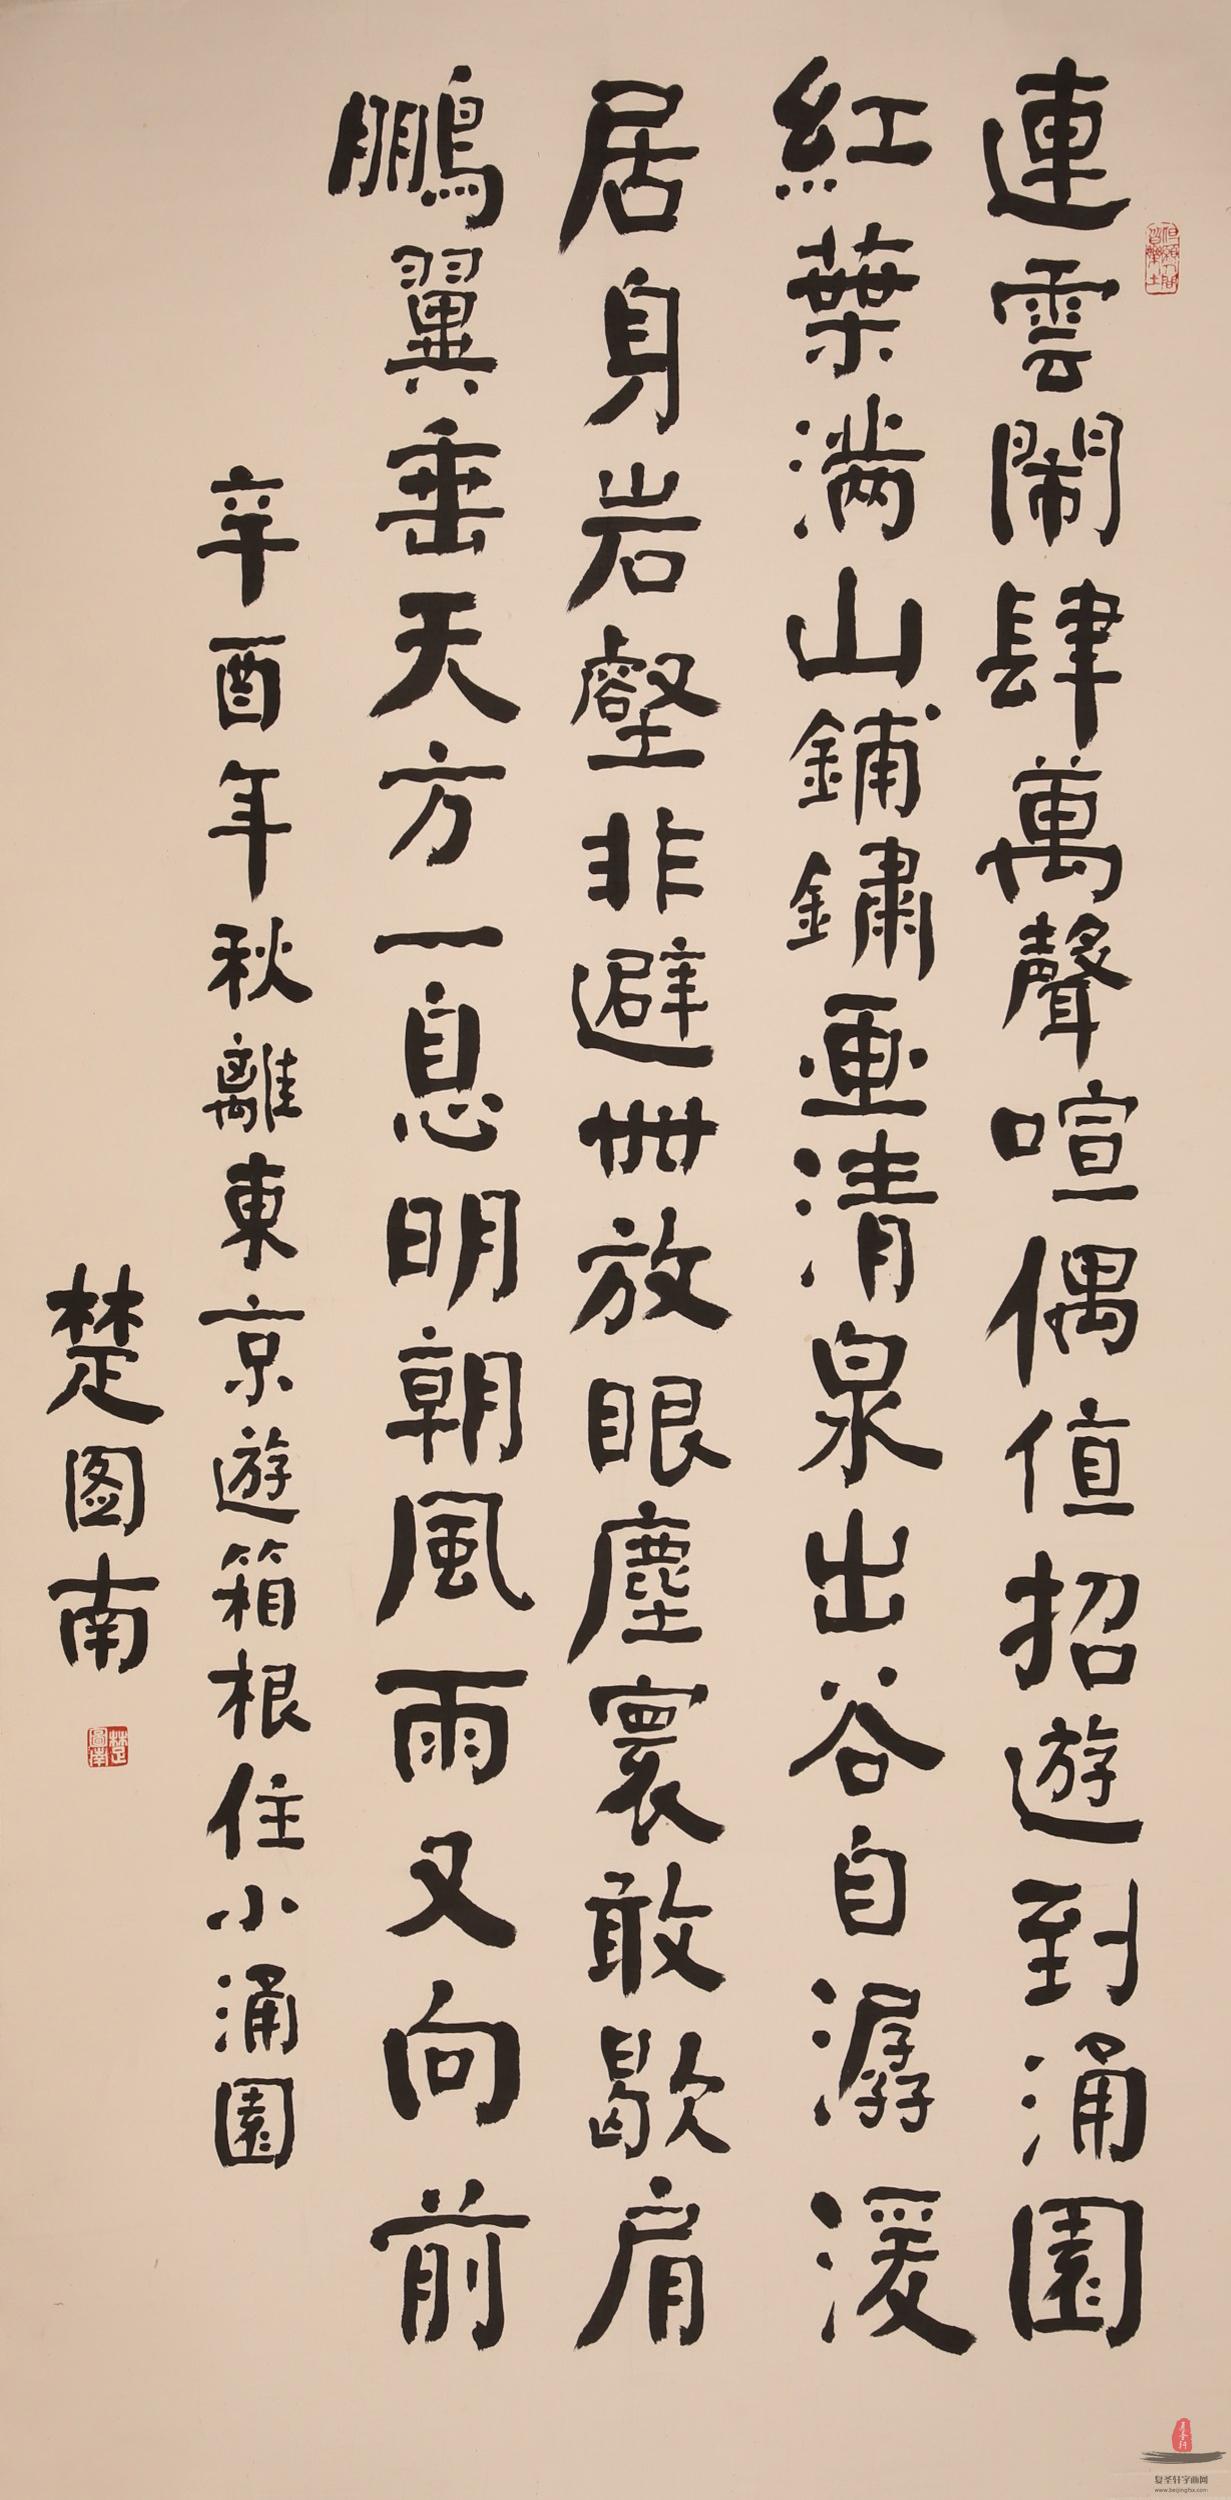 連雲鬧肆萬聲喧偶值招遊到涌園
紅葉滿山鋪鏽画清泉出谷自潺湲
居身岩壑非避世放眼塵寰敢歇肩
鵬翼垂天方一息明朝風雨又向前
辛酉年秋離東京遊箱根住小涌園
楚图南
楚圖南
但願人間皆樂土
复圣轩字画网
www.beijingfsx.com